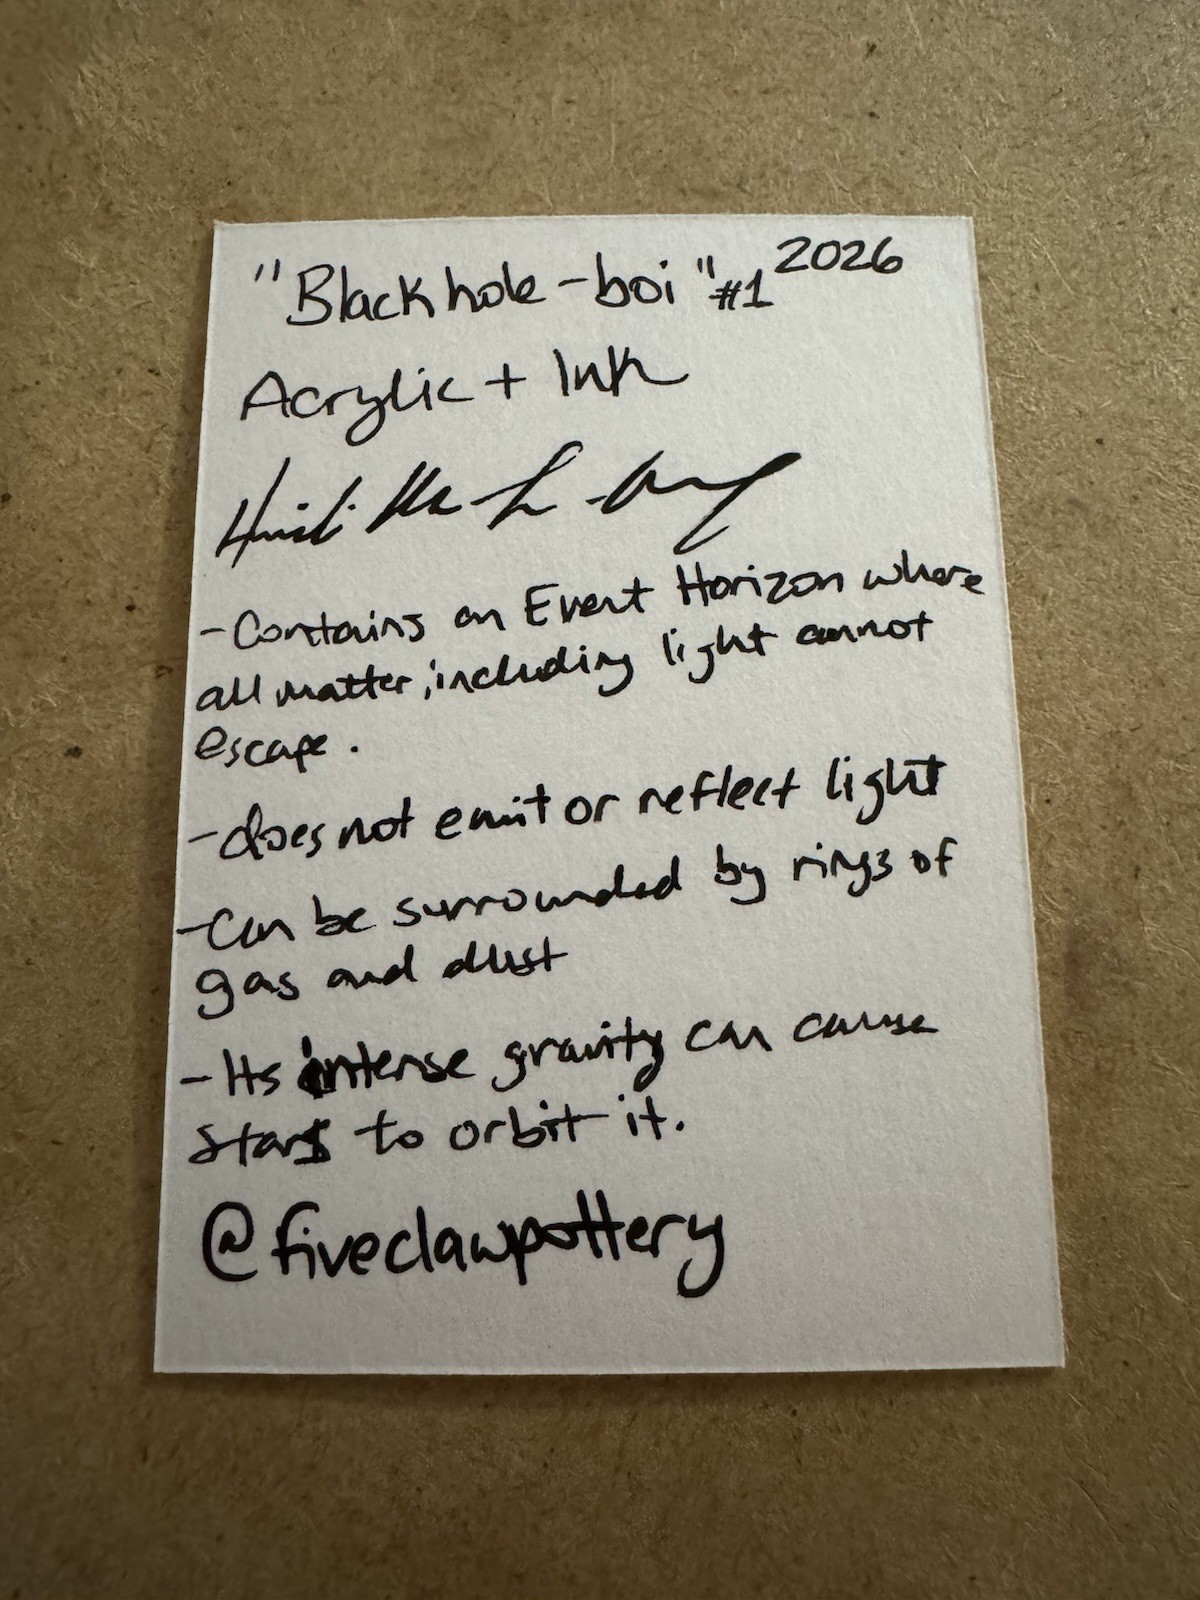 "Blackhole-boi" #1 2026
Acrylic + Ink
Heidi
- Contains an Event Horizon where
all matter, including light cannot
escape.
- does not emit or reflect light
- Can be surrounded by rings of
gas and dust
- Its intense gravity can cause
stars to orbit it.
@fiveclawpottery